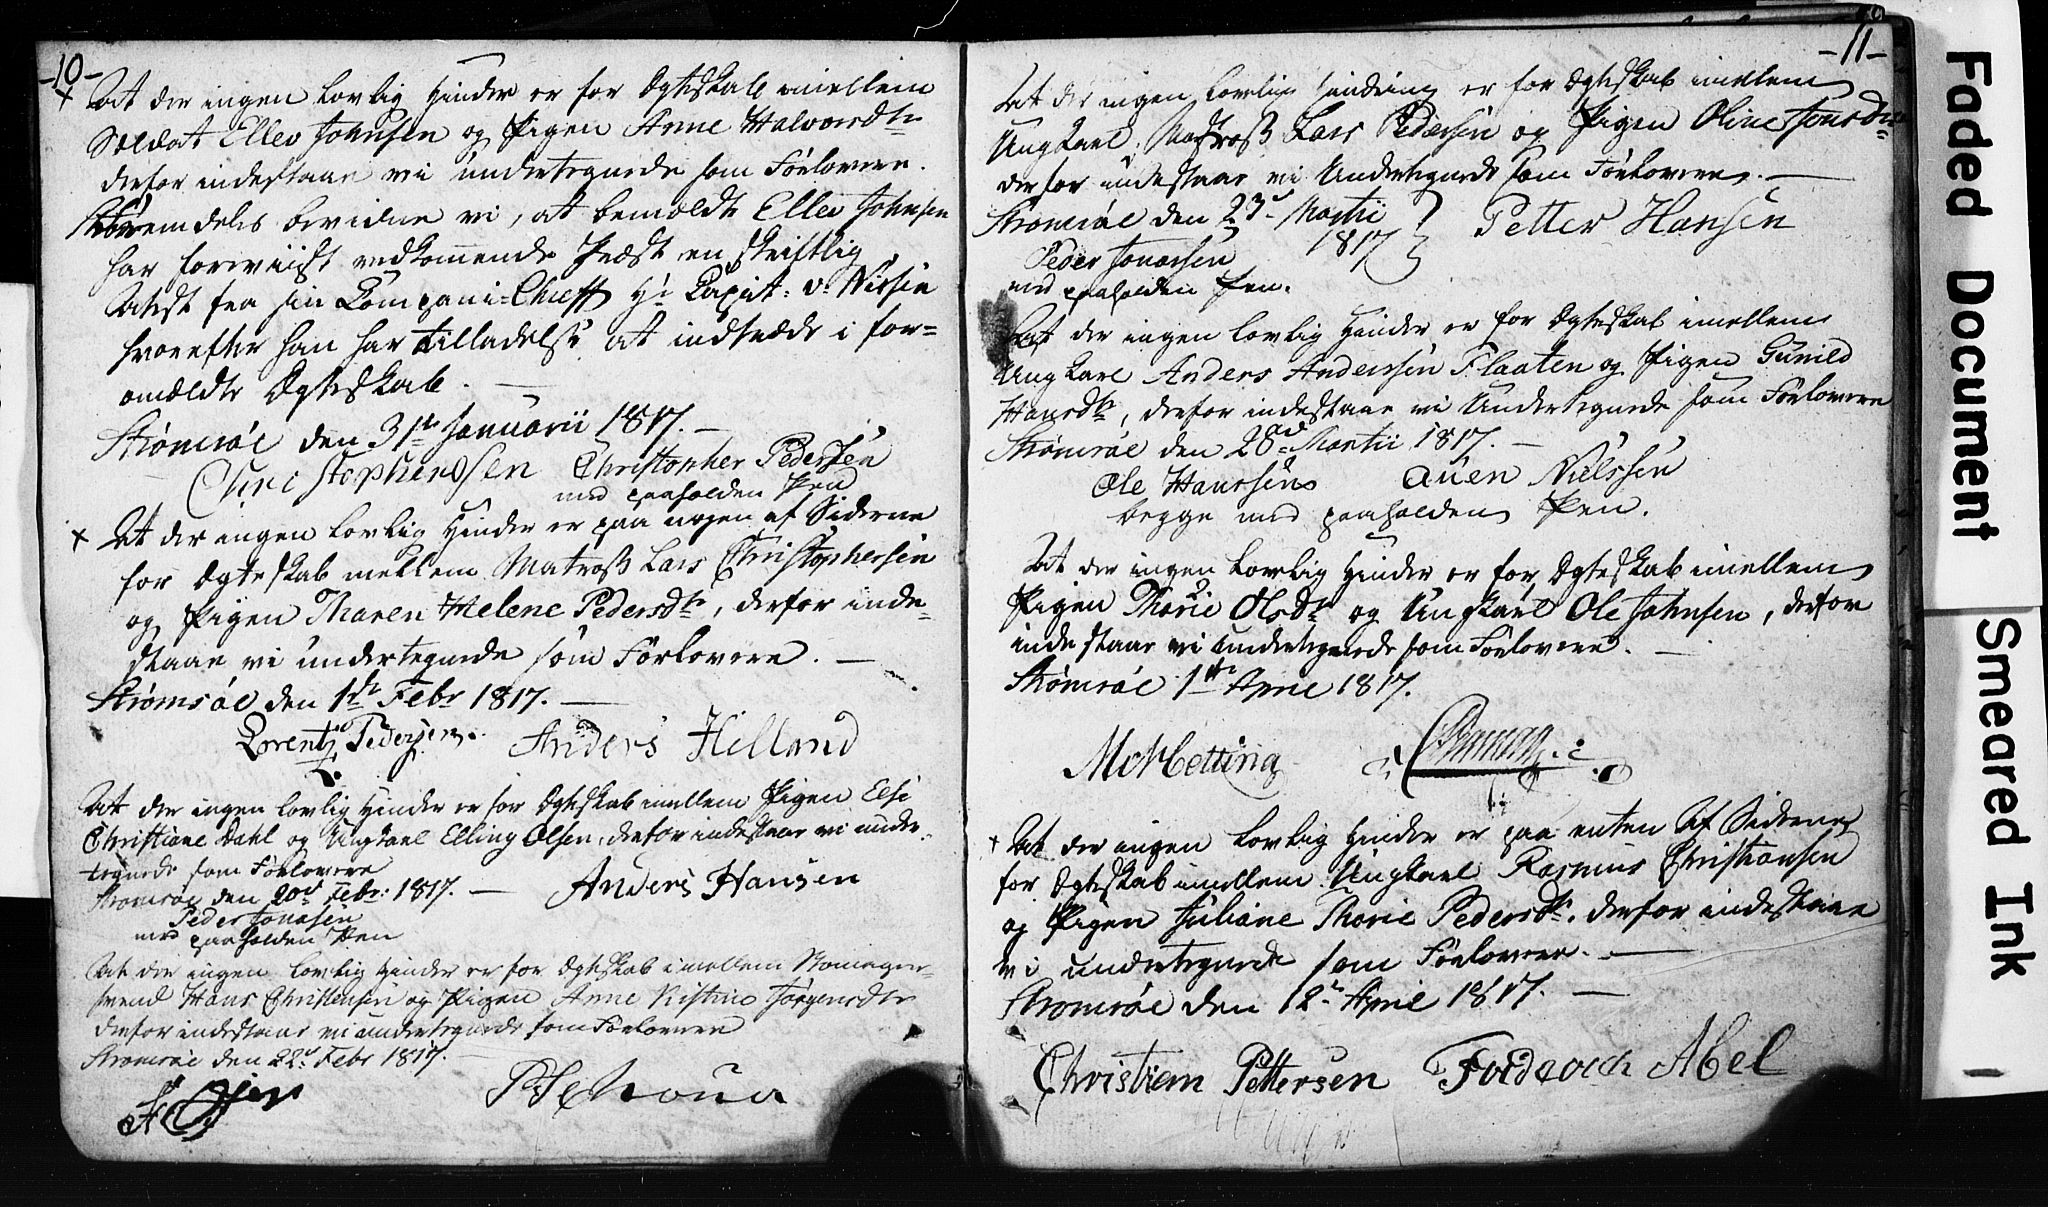 -10-
At der ingen Lovlig Hinder er for Ægteskab imellem
Soldat Ellev Johnsen og Pigen Anne Halvorsdtr
derfor indestaae vi undertegnede som Forlovere.
bevidne vi, at bemeldte Ellev Johnsen
har foreviist vedkommende Præst en skriftlig
Attest fra sin Compani-Cheff Hr Capit: v.
hvorefter han har tilladelse at indtræde i for-
anmeldte Ægteskab.
Strømsøe den 31te Januarii 1817.
Christophersen Christopher Pedersen
med paaholden Pen
x At der ingen Lovlig Hinder er paa nogen af Siderne
for Ægteskab mellem Matros Lars Christophersen
og Pigen Maren Helene Pedersdtr, derfor inde-
staae vi undertegnede som Forlovere.
Strømsøe den 1de Febr 1817.
Lorentz Pedersen. Anders Hilland
At der ingen Lovlig Hinder er for Ægteskab imellem Pigen Else
Christiane Dahl og Ungkarl Elling Olsen, derfor indestaae vi under-
tegnede som Forlovere
Strømsøe den 20de Febr: 1817. Anders Hansen
Peder Jonasen
med paaholden Pen
At der ingen Lovlig Hinder er for Ægteskab imellem Skomager-
svend Hans Christensen og Pigen Anne Kistine Jørgensdtr
derfor indestaae vi undertegnede som Forlovere
Strømsøe den 22de Febr 1817.
-11-
At der ingen Lovlig Hindring er for Ægteskab imellem
Ungkarl, Matros Lars Pedersen og Pigen Oline Jensdtr
derfor indestaae vi Undertegnede som Forlovere.
Strømsøe den 23de Martii 1817 Petter Hansen
Peder Jonassen
med paaholden Pen.
At der ingen Lovlig Hinder er for Ægteskab imellem
Ungkarl Anders Anderssen Flaaten og Pigen Gunild
Hansdtr, derfor indestaae vi Undertegnede som Forlovere
Strømsøe den 28de Martii 1817.
Ole Hanssen Auen Nielssen
begge med paaholden Pen.
At der ingen Lovlig Hinder er for Ægteskab imellem
Pigen Marie Olsdtr og Ungkarl Ole Johnsen, derfor
indestaae vi undertegnede som Forlovere.
Strømsøe 1te April 1817.
x At der ingen Lovlig Hinder er paa enten af Siderne
for Ægteskab imellem Ungkarl Rasmus Christiansen
og Pigen Juliane Marie Pedersdtr. derfor indestaae
vi undertegnede som Forlovere.
Strømsøe den 12te April 1817.
Christian Pettersen Friderich Abel
Faded Document
Smeared Ink